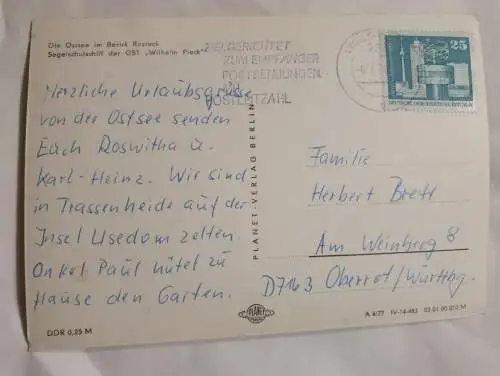 Die Ostsee im Bezirk Rostock
Segelschulschiff der GST „Wilhelm Pieck"
ZIELGERICHTET
ZUM EMPFÄNGER
POSTSENDUNGEN
POSTLEITZAHL
25
DEUTSCHE DEMOKRATISCHE REPUBLIK
Herzliche Urlaubsgrüsse
von der Ostsee senden
Euch Roswitha u.
Karl-Heinz. Wir sind
in Trassenheide auf der
Insel Usedom zelten.
Onkel Paul hütet zu
Hause den Garten.
PLANET-VERLAG BERLIN
Familie
Herbert Brett
Am Weinberg 8
D7163 Oberrot/Württbg.
DDR 0,25 M
PLANET
A 4/77 IV-14-483 03 01 00 010 M